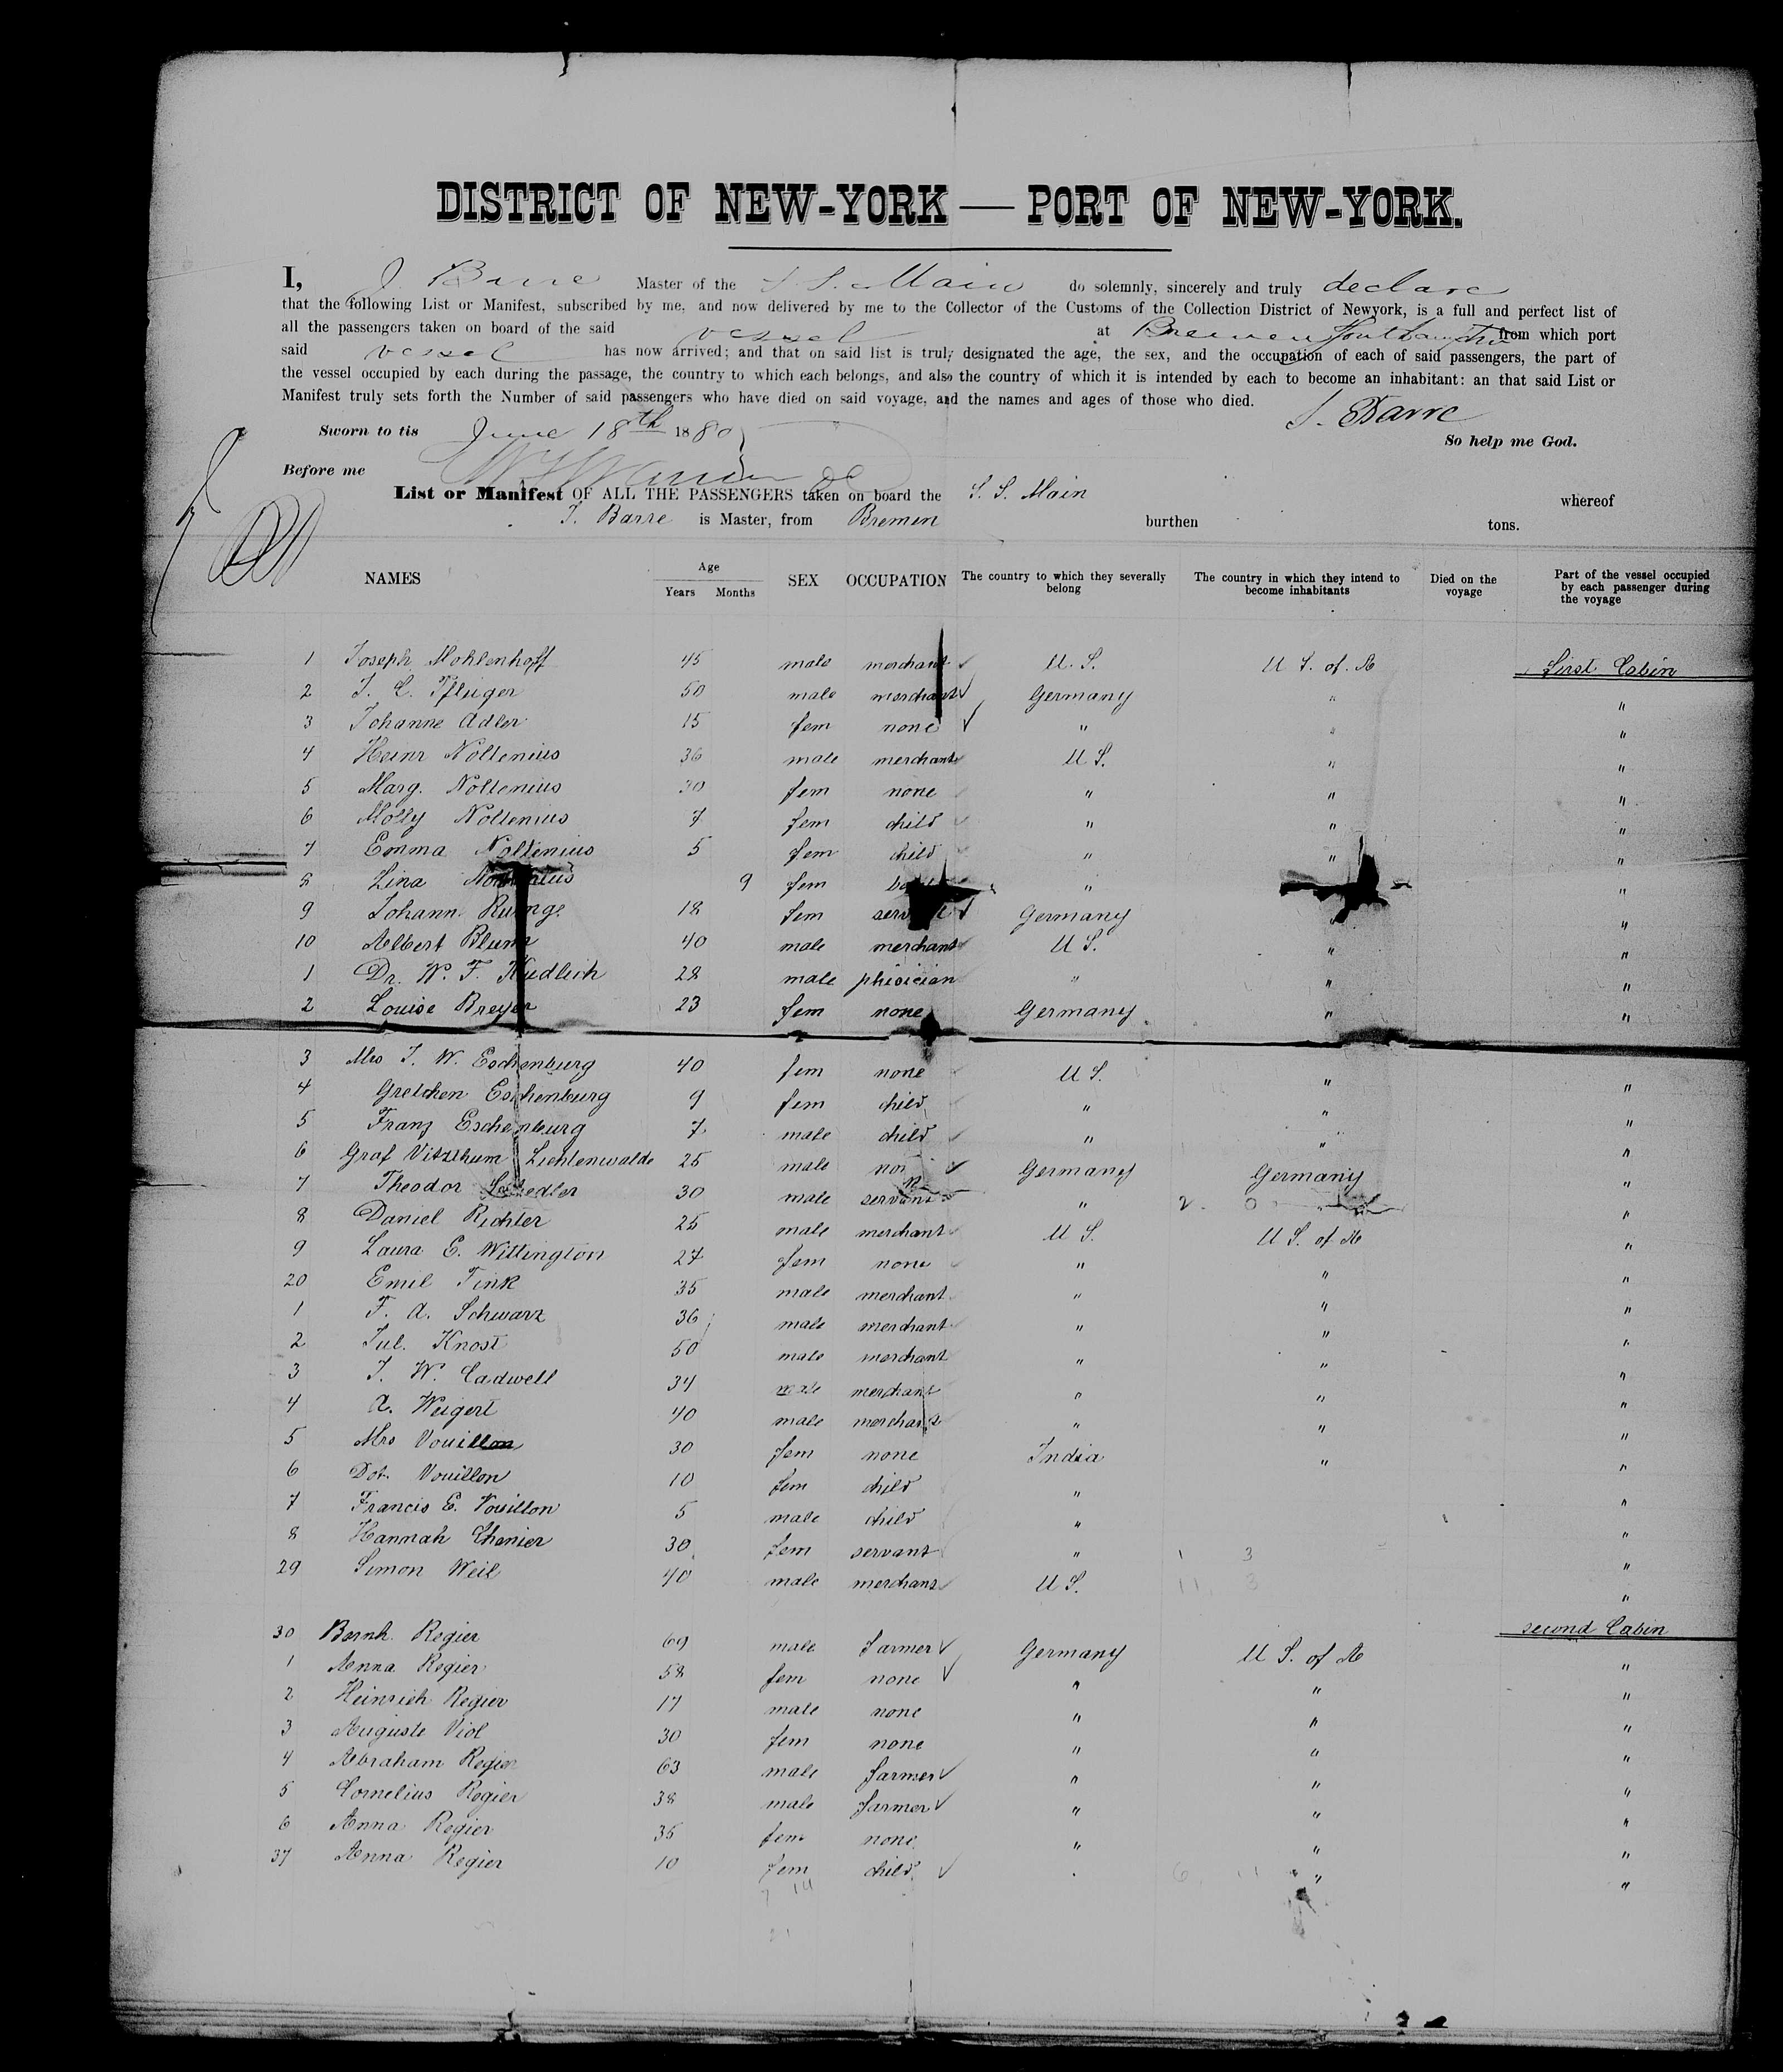 DISTRICT OF NEW-YORK — PORT OF NEW-YORK.
I, J. Barre Master of the S. S. Main do solemnly, sincerely and truly declare
that the following List or Manifest, subscribed by me, and now delivered by me to the Collector of the Customs of the Collection District of Newyork, is a full and perfect list of
all the passengers taken on board of the said vessel at Bremen Southampton from which port
said vessel has now arrived; and that on said list is truly designated the age, the sex, and the occupation of each of said passengers, the part of
the vessel occupied by each during the passage, the country to which each belongs, and also the country of which it is intended by each to become an inhabitant: an that said List or
Manifest truly sets forth the Number of said passengers who have died on said voyage, and the names and ages of those who died.
J. Barre
Sworn to tis June 18th 1880
So help me God.
Before me
List or Manifest OF ALL THE PASSENGERS taken on board the S. S. Main whereof
J. Barre is Master, from Bremen burthen tons.
NAMES Age Years Months SEX OCCUPATION The country to which they severally belong The country in which they intend to become inhabitants Died on the voyage Part of the vessel occupied by each passenger during the voyage
1 Joseph Mohlenhoff 45 male merchant U. S. U S. of A First Cabin
2 J. C. Pflüger 50 male merchant Germany " "
3 Johanne Adler 15 fem none " " "
4 Heinr Noltenius 36 male merchant U S. " "
5 Marg. Noltenius 30 fem none " " "
6 Molly Noltenius 7 fem child " " "
7 Emma Noltenius 5 fem child " " "
8 Lina Noltenius 9 fem " "
9 Johann Runge 18 fem servant Germany "
10 Albert Blum 40 male merchant U S. " "
1 Dr. W. F. Kudlich 28 male phisician " " "
2 Louise Breyer 23 fem none Germany " "
3 Mrs J. W. Eschenburg 40 fem none U S. " "
4 Gretchen Eschenburg 9 fem child " " "
5 Franz Eschenburg 7 male child " " "
6 Graf Vitzthum Lichtenwalde 25 male non Germany Germany "
7 Theodor 30 male servant " " "
8 Daniel Richter 25 male merchant U S. U S. of A "
9 Laura E. Wittington 27 fem none " " "
20 Emil Fink 35 male merchant " " "
1 F. A. Schwarz 36 male merchant " " "
2 Jul. Knost 50 male merchant " " "
3 J. W. Cadwell 34 male merchant " " "
4 A. Weigert 40 male merchant " " "
5 Mrs Vouillon 30 fem none India " "
6 Dot. Vouillon 10 fem child " "
7 Francis E. Vouillon 5 male child " "
8 Hannah Chenier 30 fem servant " "
29 Simon Weil 40 male merchant U S. "
second Cabin
30 Bernh. Regier 69 male farmer Germany U S. of A "
1 Anna Regier 58 fem none " " "
2 Heinrich Regier 17 male none " " "
3 Auguste Viol 30 fem none " " "
4 Abraham Regier 63 male farmer " " "
5 Cornelius Regier 38 male farmer " " "
6 Anna Regier 35 fem none " " "
37 Anna Regier 10 fem child " "